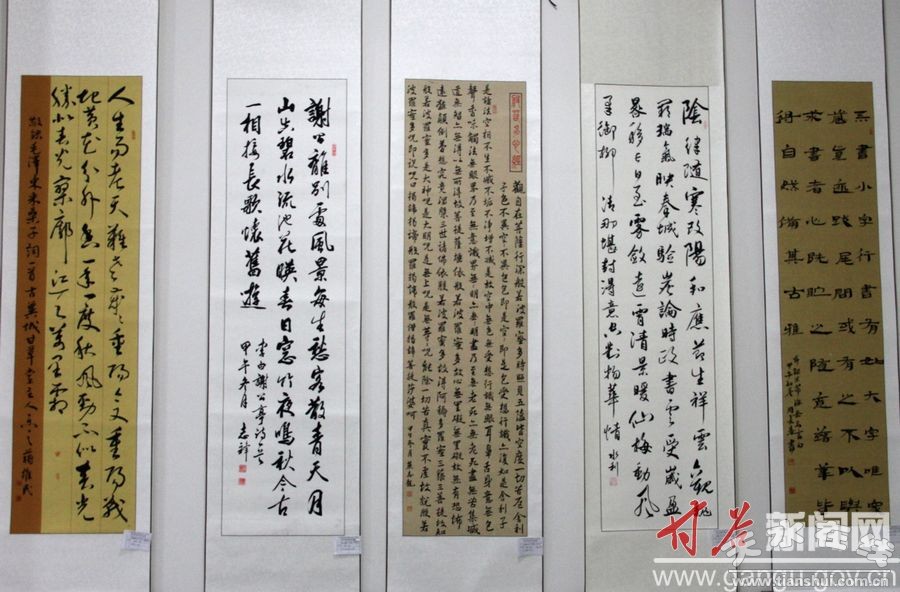 人生易老天難老歲歲重陽今又重陽戰
地黄花分外香一年一度秋風勁不似春光
勝似春光寥廓江天萬里霜
敬錄毛澤東采桑子詞一首古冀城甘草堂主人 蔣維民
謝公離別處風景每生愁客散青天月
山空碧水流池花暎春日窓竹夜鳴秋今古
一相接長歌懷舊遊
李白謝公亭詩一首
甲午春月 志祥
觀自在菩薩行深般若波羅蜜多時照見五蘊皆空度一切苦厄舍利
子色不異空空不異色色即是空空即是色受想行識亦復如是舍利子
是諸法空相不生不滅不垢不淨不增不減是故空中無色無受想行識無眼耳鼻舌身意無色
聲香味觸法無眼界乃至無意識界無無明亦無無明盡乃至無老死亦無老死盡無苦集滅
道無智亦無得以無所得故菩提薩埵依般若波羅蜜多故心無罣礙無罣礙故無有恐怖
遠離顛倒夢想究竟涅槃三世諸佛依般若波羅蜜多故得阿耨多羅三藐三菩提故知
般若波羅蜜多是大神咒是大明咒是無上咒是無等等咒能除一切苦真實不虛故說般若
波羅蜜多咒即說咒曰揭諦揭諦般羅揭諦般羅僧揭諦菩提莎婆呵
陰律隨寒改陽和應節生祥雲觀魏
闕瑞氣映秦城驗歲論時政書雲受歲盈
晷移長日至霧斂遠霄清景暖仙梅動風
柔御柳傾那堪封得意空對物華情 永利
吾書小字行書有如大字唯家
藏真跡跋尾間或有之不以與
求書者心既貯之隨意落筆皆
得自然備其古雅
甘谷新闻网
www.gangu.gov.cn
www.tianshui.com.cn